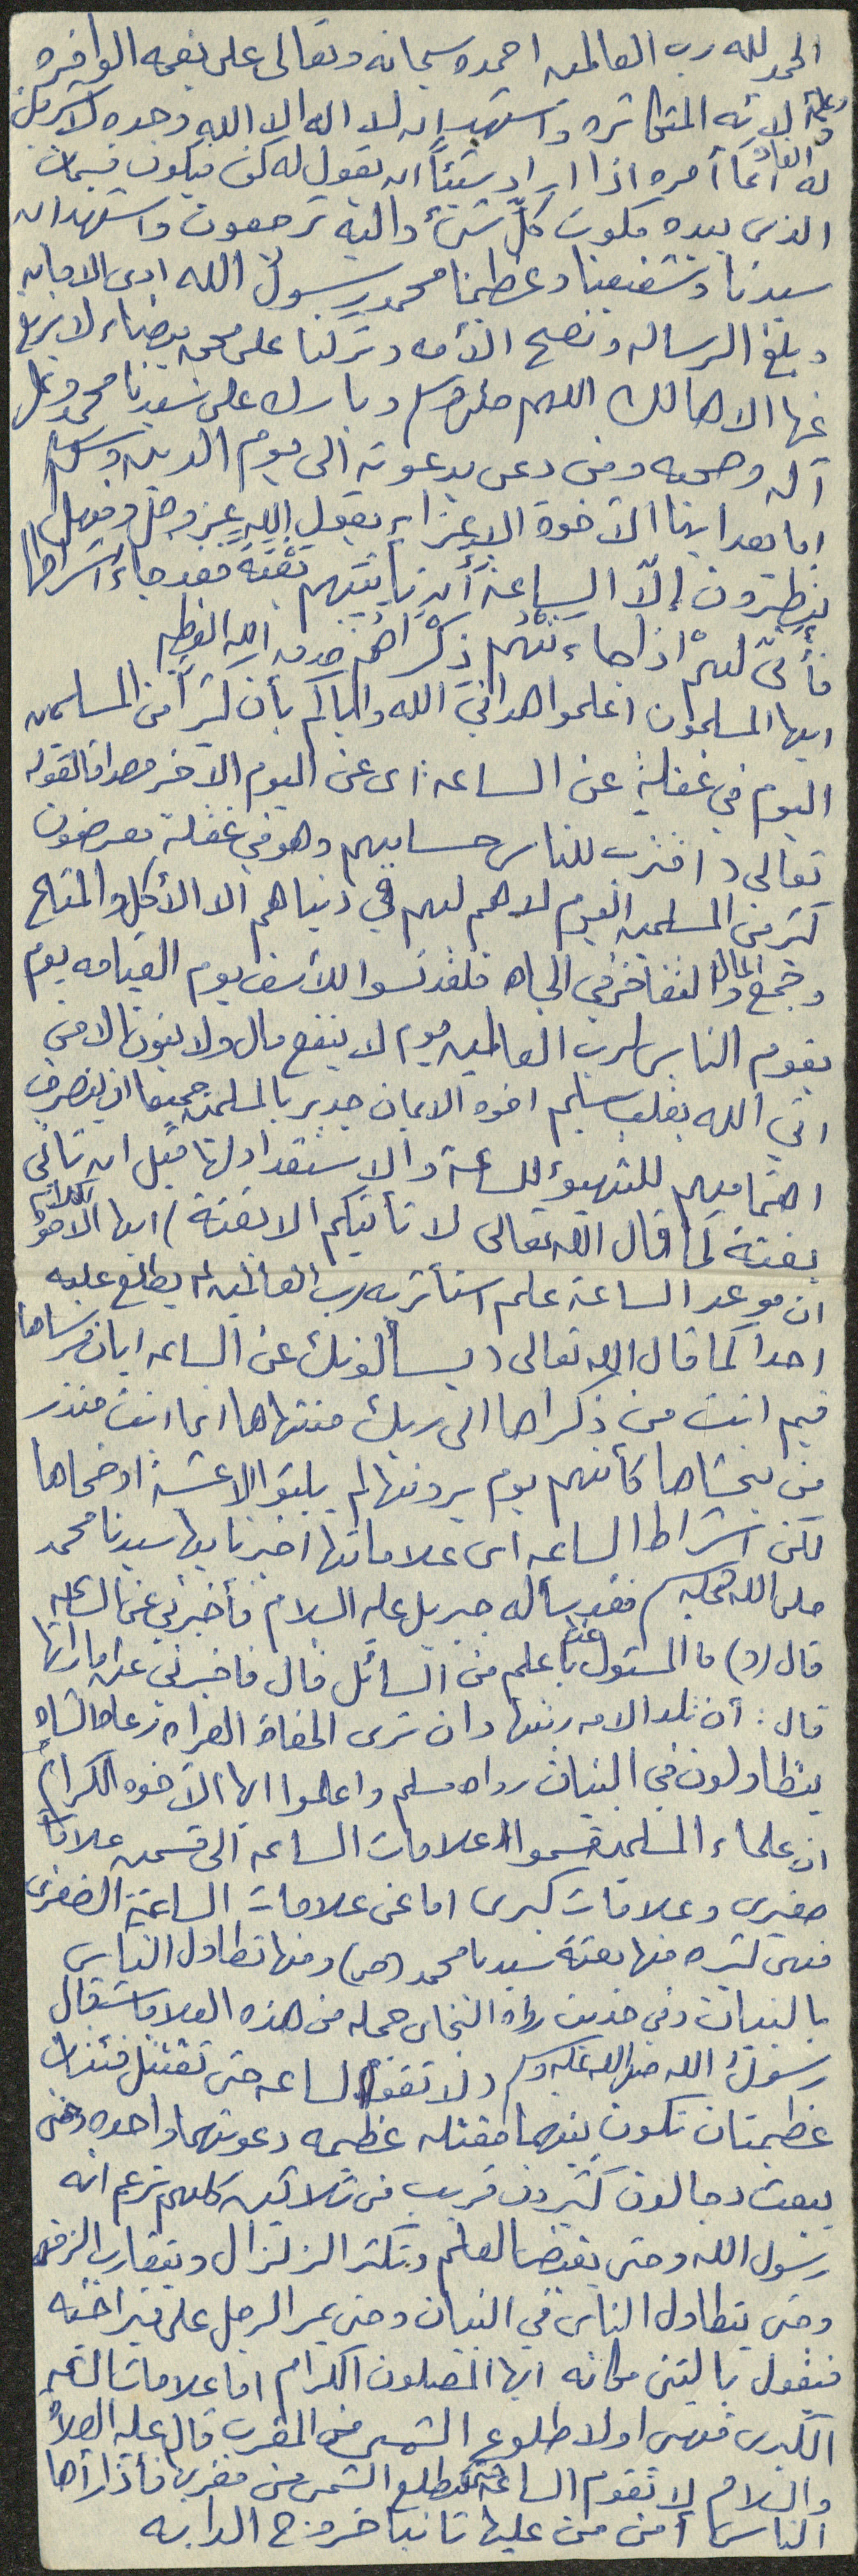 الحمد لله رب العالمين احمده سبحانه وتعالى على نعمه الوافره
وعلى آلائه المتكاثره واشهد ان لا اله الا الله وحده لا شريك
له القائل انما أمره اذا اراد شيئاً ان يقول له كن فيكون فسبحان
الذى بيده ملكوت كلّ شئ واليه ترجعون واشهد ان
سيدنا وشفيعنا وعظيمنا محمد رسول الله ادى الامانه
وبلغ الرساله ونصح الأمه وتركنا على محجه بيضاء لا يزيغ
عنها الا هالك اللهم صلى وسلم وبارك على سيدنا محمد وعلى
آله وصحبه ومن دعى بدعوته الى يوم الدين وسلم
اما بعد ايها الآخوة الاعزاء يقول الله عز وجل فهل
ينظرون إلاّ الساعة أن تأتيهم بَغْتَةً فقد جاء أشراطها
فأنّى لهمْ اذا جاءتْهُم ذكْراهُمْ صدق الله العظيم
ايها المسلمون اعلموا هدانى الله واياكم بأن كثيراً من المسلمين
اليوم في غفلةٍ عن الساعه : اى عن اليوم الآخر مصداقا لقوله
تعالى ( اقترب للناس حسابهم وهم في غفلة معرضون
كثير من المسلمين اليوم لا هم لهم في دنياهم الا الأكل والمتاع
وجمع المال والتفاخر في الجاه فلقد نسوا للأسف يوم القيامه يوم
يقوم الناس لرب العالمين يوم لا ينفع مال ولا بنون الا من
اتى الله بقلب سليم اخوه الايمان جدير بالمسلمين جميعا ان ينصرف
اهتمامهم للتهيؤ للساعة والاستعداد لها قبل ان تأتي
بغتة كما قال الله تعالى لا تأتيكم الا بغتة ) ايها الاخوة الكرام
ان موعد الساعة علم استأثر به رب العالمين لم يطلع عليه
احدا كما قال الله تعالى ( يسألونك عن الساعه ايان مرساها
فيم انت من ذكراها الى ربك منتهاها انما انت منذر
من يخشاها كأنهم يوم يرونها لم يلبثوا الا عشية او ضحاها
لكن اشراط الساعه اى علاماتها اخبرنا بها سيدنا محمد
صلى الله عليه وسلم فقد سأله جبريل عليه السلام فأخبرني عن الساعه
قال (د) ما المسئول عنها بأعلم من السائل قال فاخبرني عن اماراتها
قال : أن تلد الامه ربتها وان ترى الحفاة العراه رعاء الشاه
يتطاولون في البنيان رواه مسلم واعلموا ايها الآخوه الكرام
ان علماء المسلمين قسموا علامات الساعه الى قسمين علامات
صغرى وعلامات كبرى اما عن علامات الساعة الصغرى
فهى كثيره منها بعثة سيدنا محمد (ص) ومنها تطاول الناس
بالبنيان وفي حديث رواه البخارى جمله من هذه العلامات قال
رسول الله صلى الله عليه وسلم ( لا تقوم الساعه حتى تقتتل فئتان
عظيمتان تكون بينهما مقتله عظيمه دعوتهما واحده وحتى
يبعث دجالون كثيرون قريب من ثلاثين كلهم يزعم انه
رسول الله وحتى يقبض العلم وتكثر الزلازل ويتقارب الزمن
وحتى يتطاول الناس في البنيان وحتى يمر الرجل على قبر اخيه
فيقول يا ليتنى مكانه ايها المصلون الكرام اما علامات الساعه
الكبرى فهى اولا طلوع الشمس من المغرب قال عليه الصلاة
والسلام لا تقوم الساعة حتى تطلع الشمس من مغربها فأذا رأها
الناس أمن من عليها ثانيا خروج الدابه